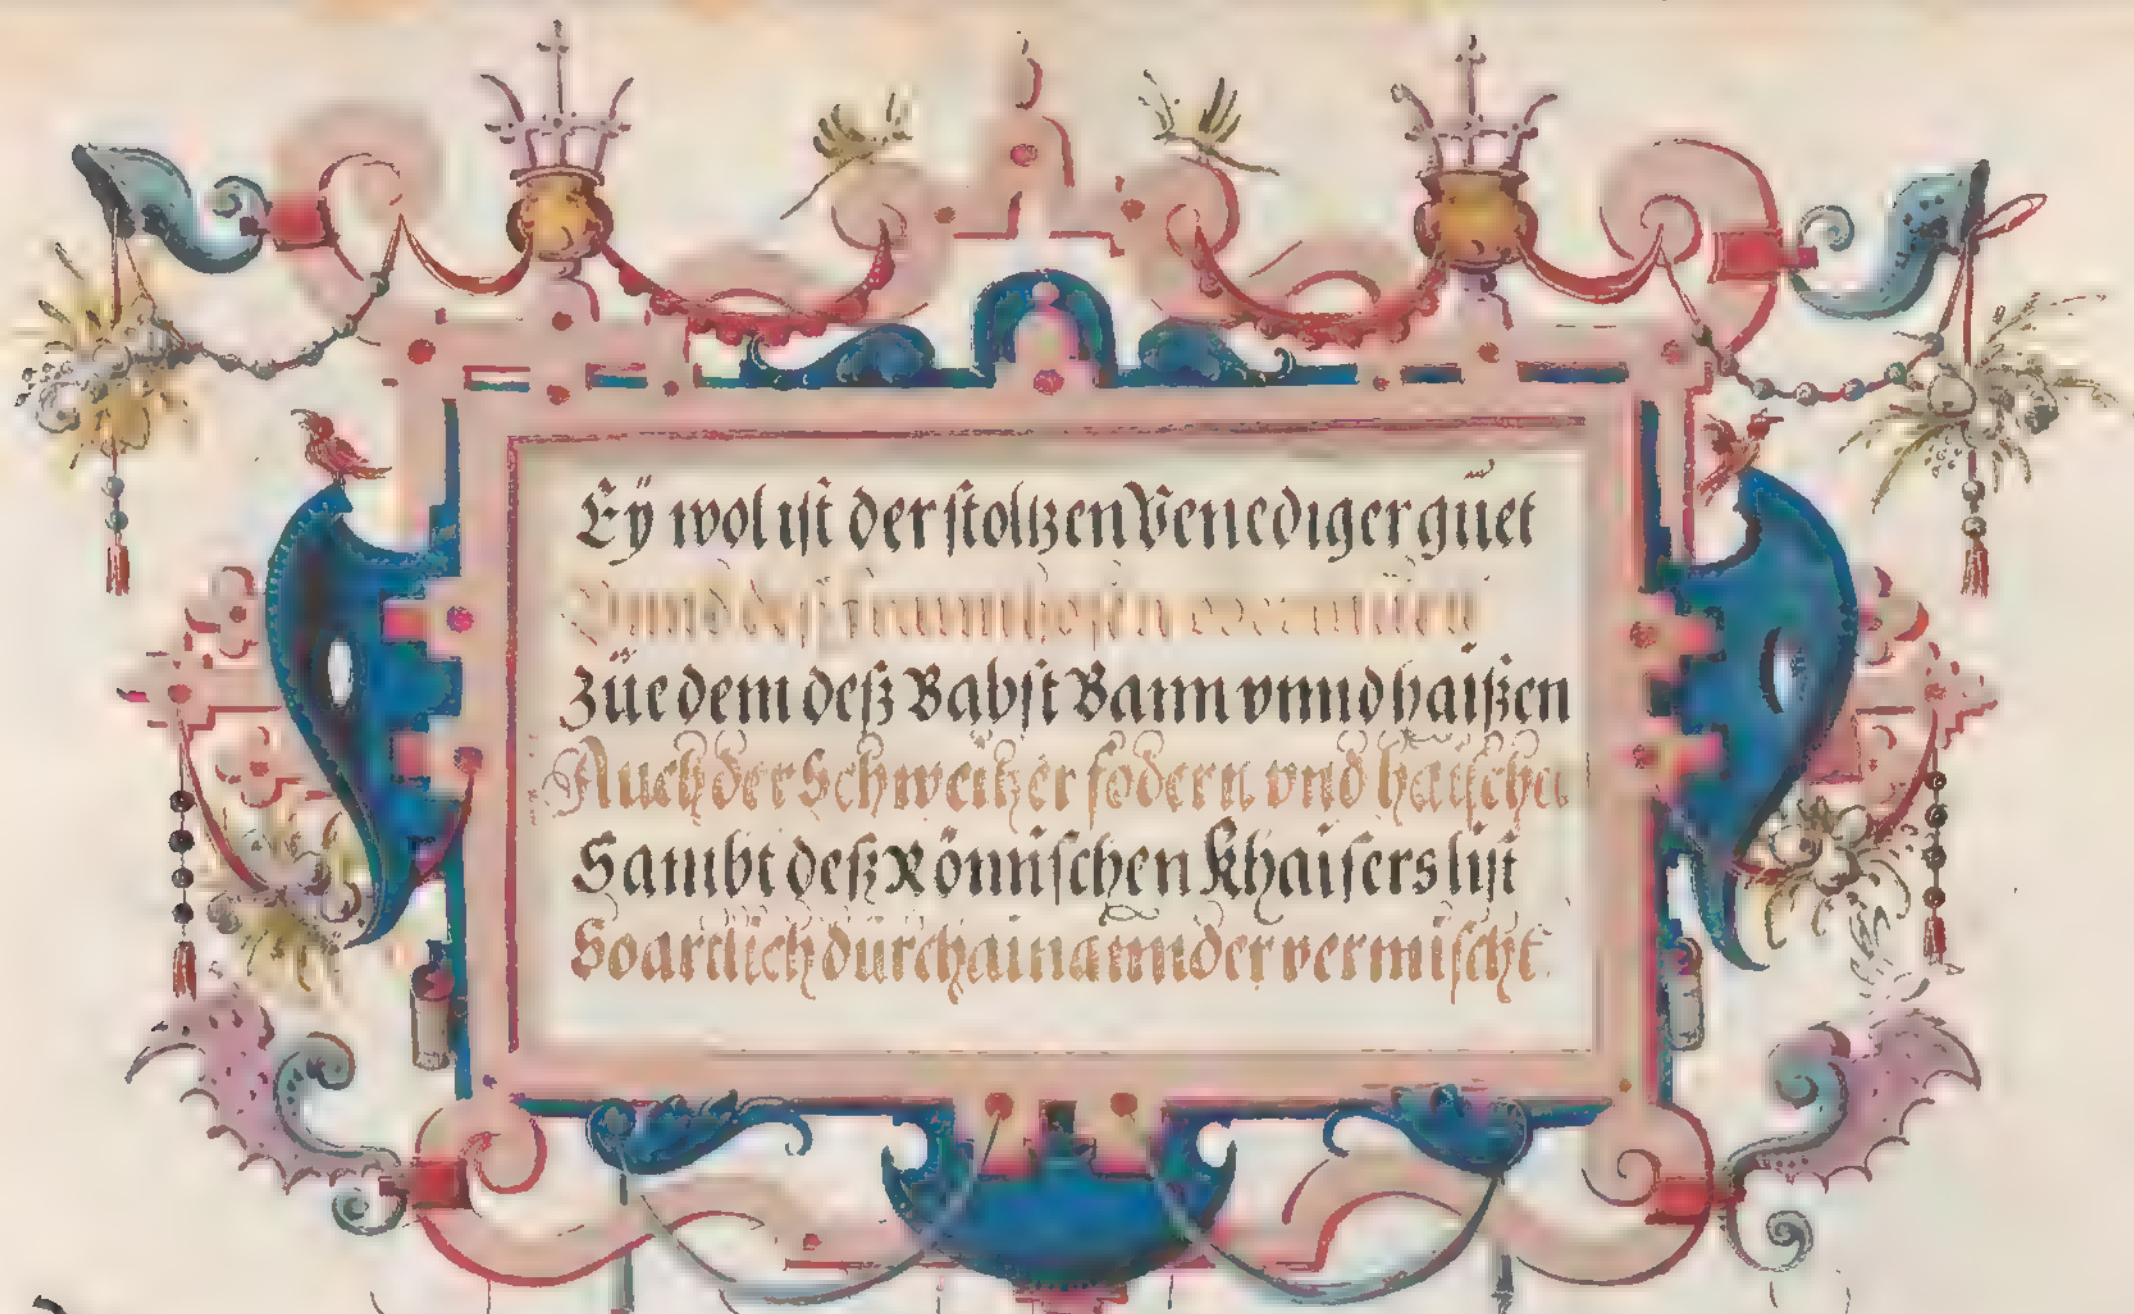 Eÿ wol ist der stoltzen Venediger güet
Vnnd deß
Züe dem deß Babst Bann vnnd haißen
Auch der Schweitzer fodern vnd haischen
Sambt deß Römischen Khaisers list
So artlich durch ainannder vermischt